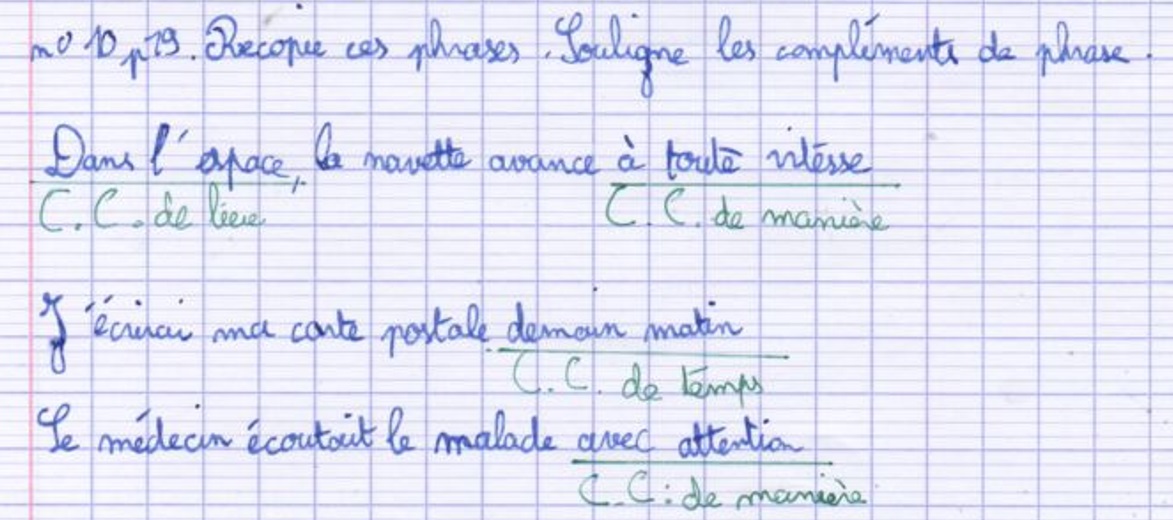 n° 10 p 79. Recopie ces phrases. Souligne les compléments de phrase.
Dans l'espace, la navette avance à toute vitesse
C.C. de lieu C.C. de manière
J'écrirai ma carte postale demain matin
C.C. de temps
Le médecin écoutait le malade avec attention
C.C: de manière